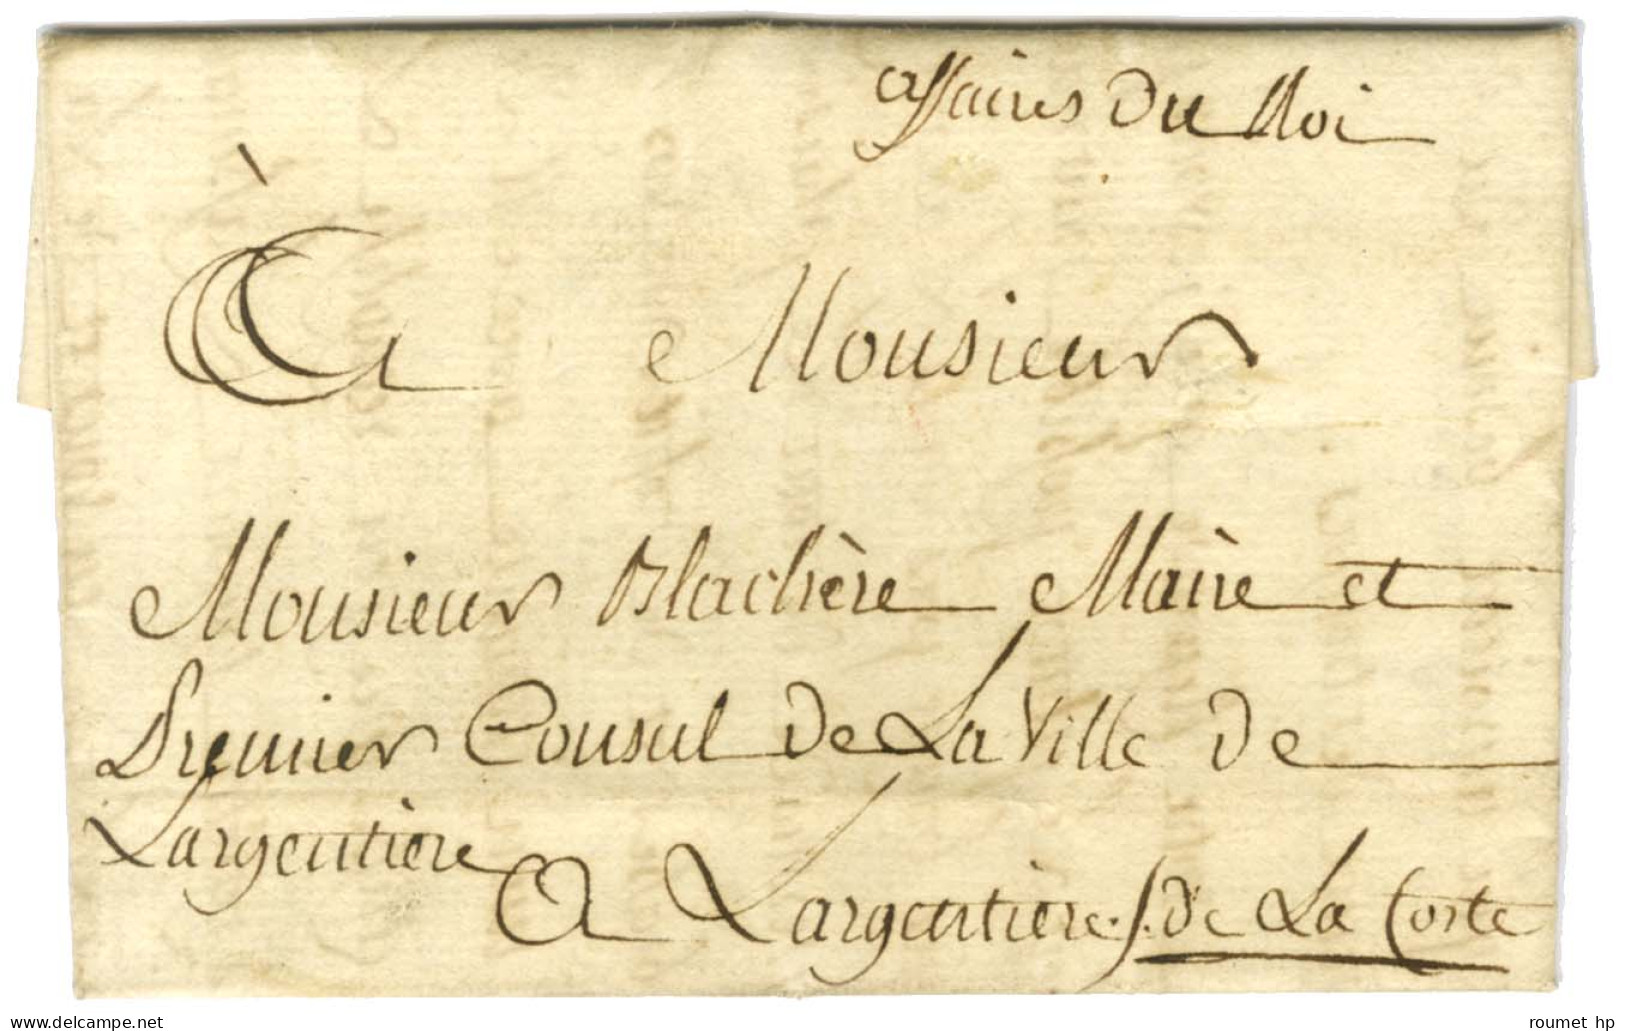 affaires du Roi
À Monsieur
Monsieur Blachère Maire et
Premier Consul de La Ville de
Largentière
A Largentiere. /. de La Coste
www.delcampe.net
roumet_hp